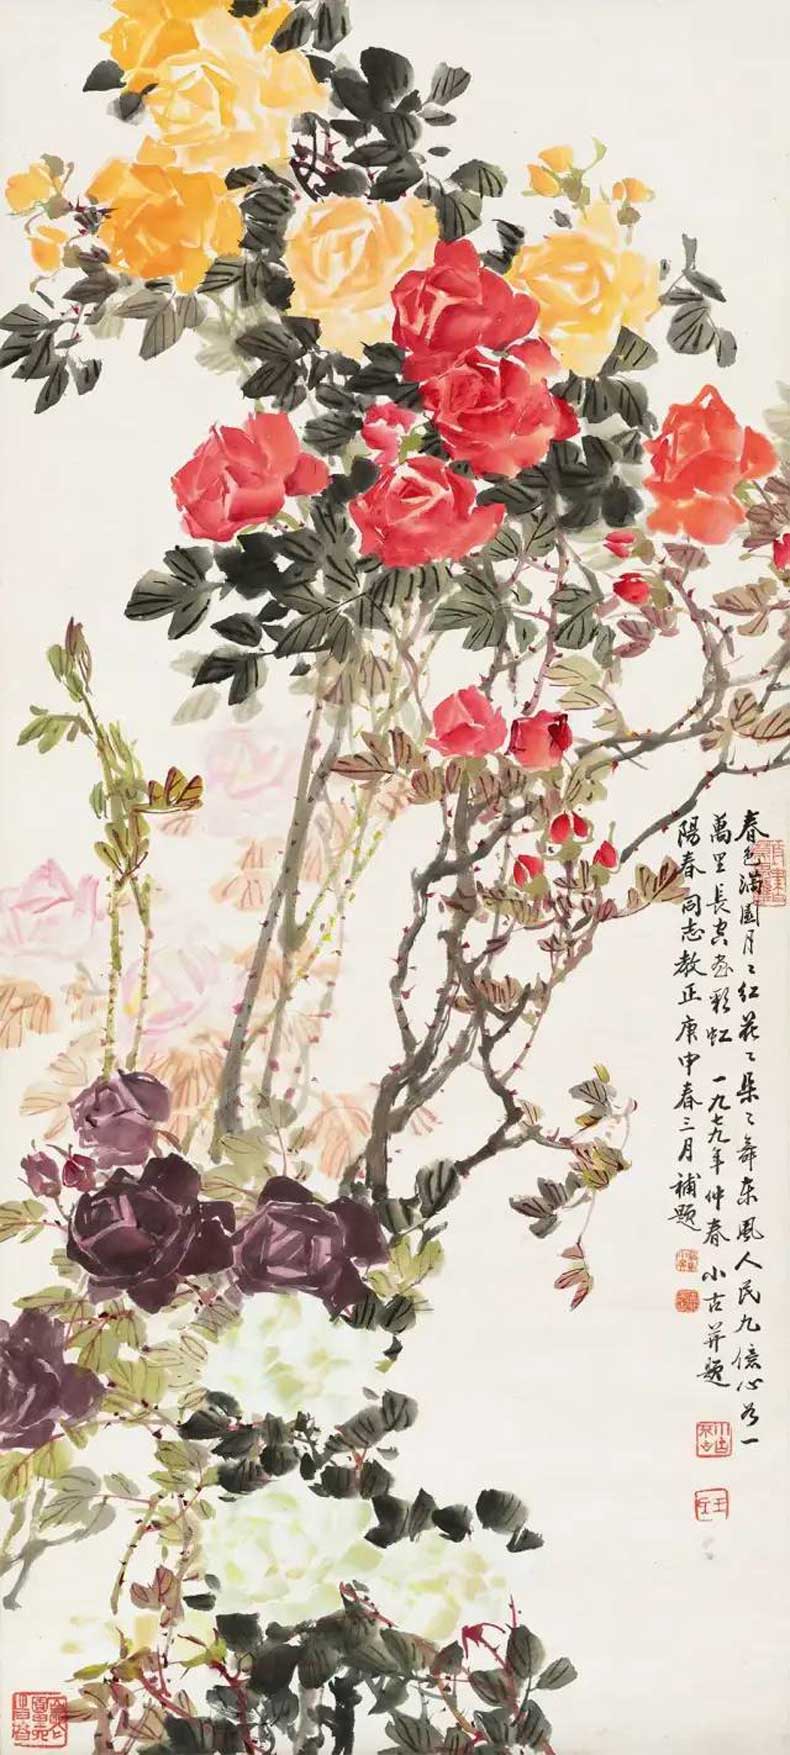 春色滿園月〻紅花〻朵〻舞東風人民九億心為一
萬里長空起彩虹 一九七九年仲春 小古並題
陽春同志教正庚申春三月補題